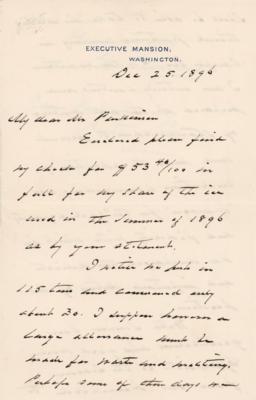 EXECUTIVE MANSION,
WASHINGTON.
Dec 25. 1896
My dear Mr Parkinson
Enclosed please find
my check for $53 40/100 in
full for my share of the ice
used in the Summer of 1896
as by your statement.
I notice we put in
115 tons and consumed only
about 20. I suppose however a
large allowance must be
made for waste and melting.
Perhaps some of these days we